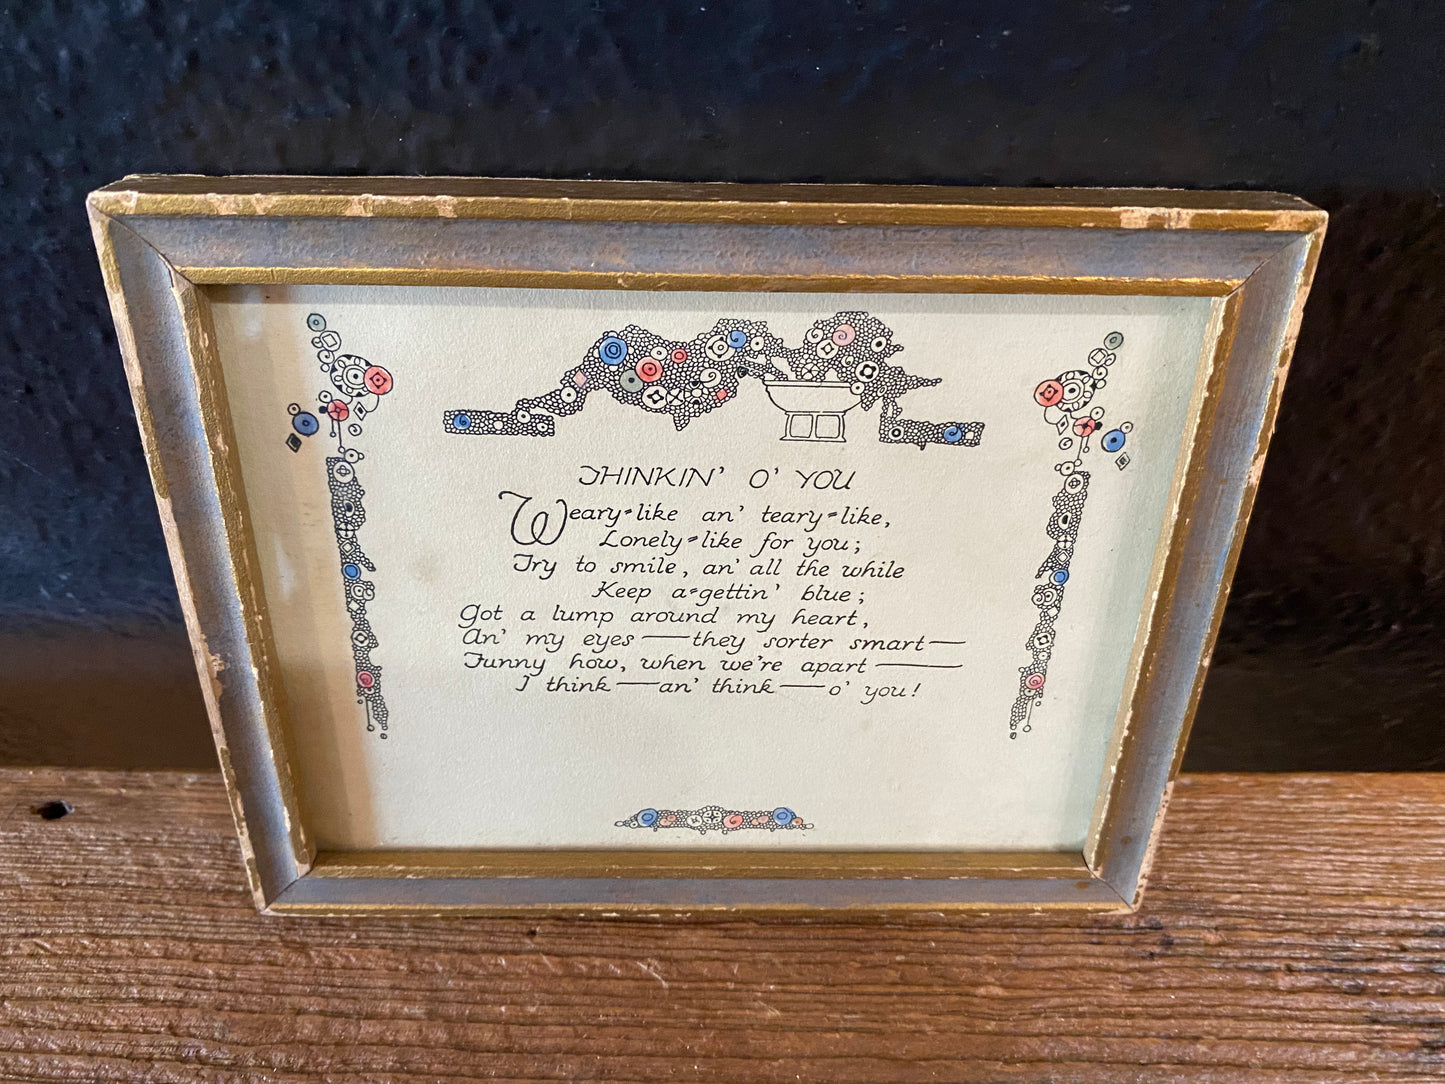 THINKIN' O' YOU
Weary-like an' teary-like,
Lonely-like for you;
Try to smile, an' all the while
Keep a-gettin' blue;
Got a lump around my heart,
An' my eyes — they sorter smart —
Funny how, when we're apart —
I think — an' think — o' you!